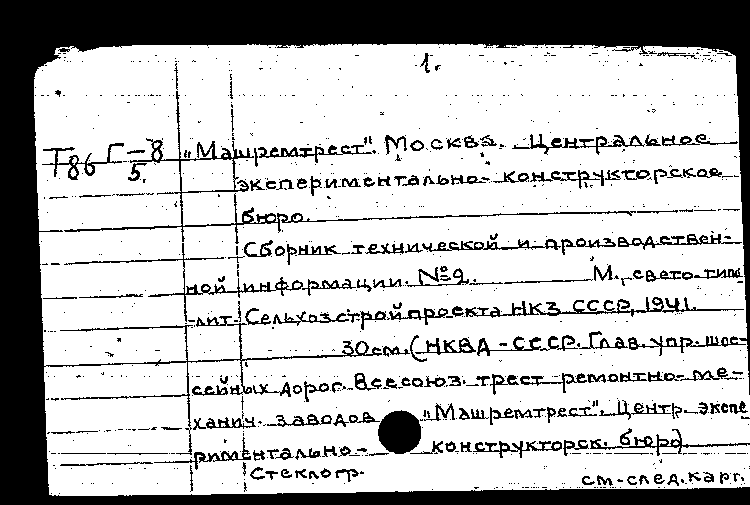 1.
Т86 Г-8/5. „Машремтрест". Москва. Центральное
экспериментально-конструкторское
бюро.
Сборник технической и производствен-
ной информации. №9. М., свето-тип
-лит. Сельхозстройпроекта НКЗ СССР, 1941.
30см. (НКВД-СССР. Глав. упр. шос-
сейных дорог. Всесоюз. трест ремонтно-ме-
ханич. заводов „Машремтрест". Центр. экспе
риментально- конструкторск. бюро).
Стеклогр.
см-след.карт.